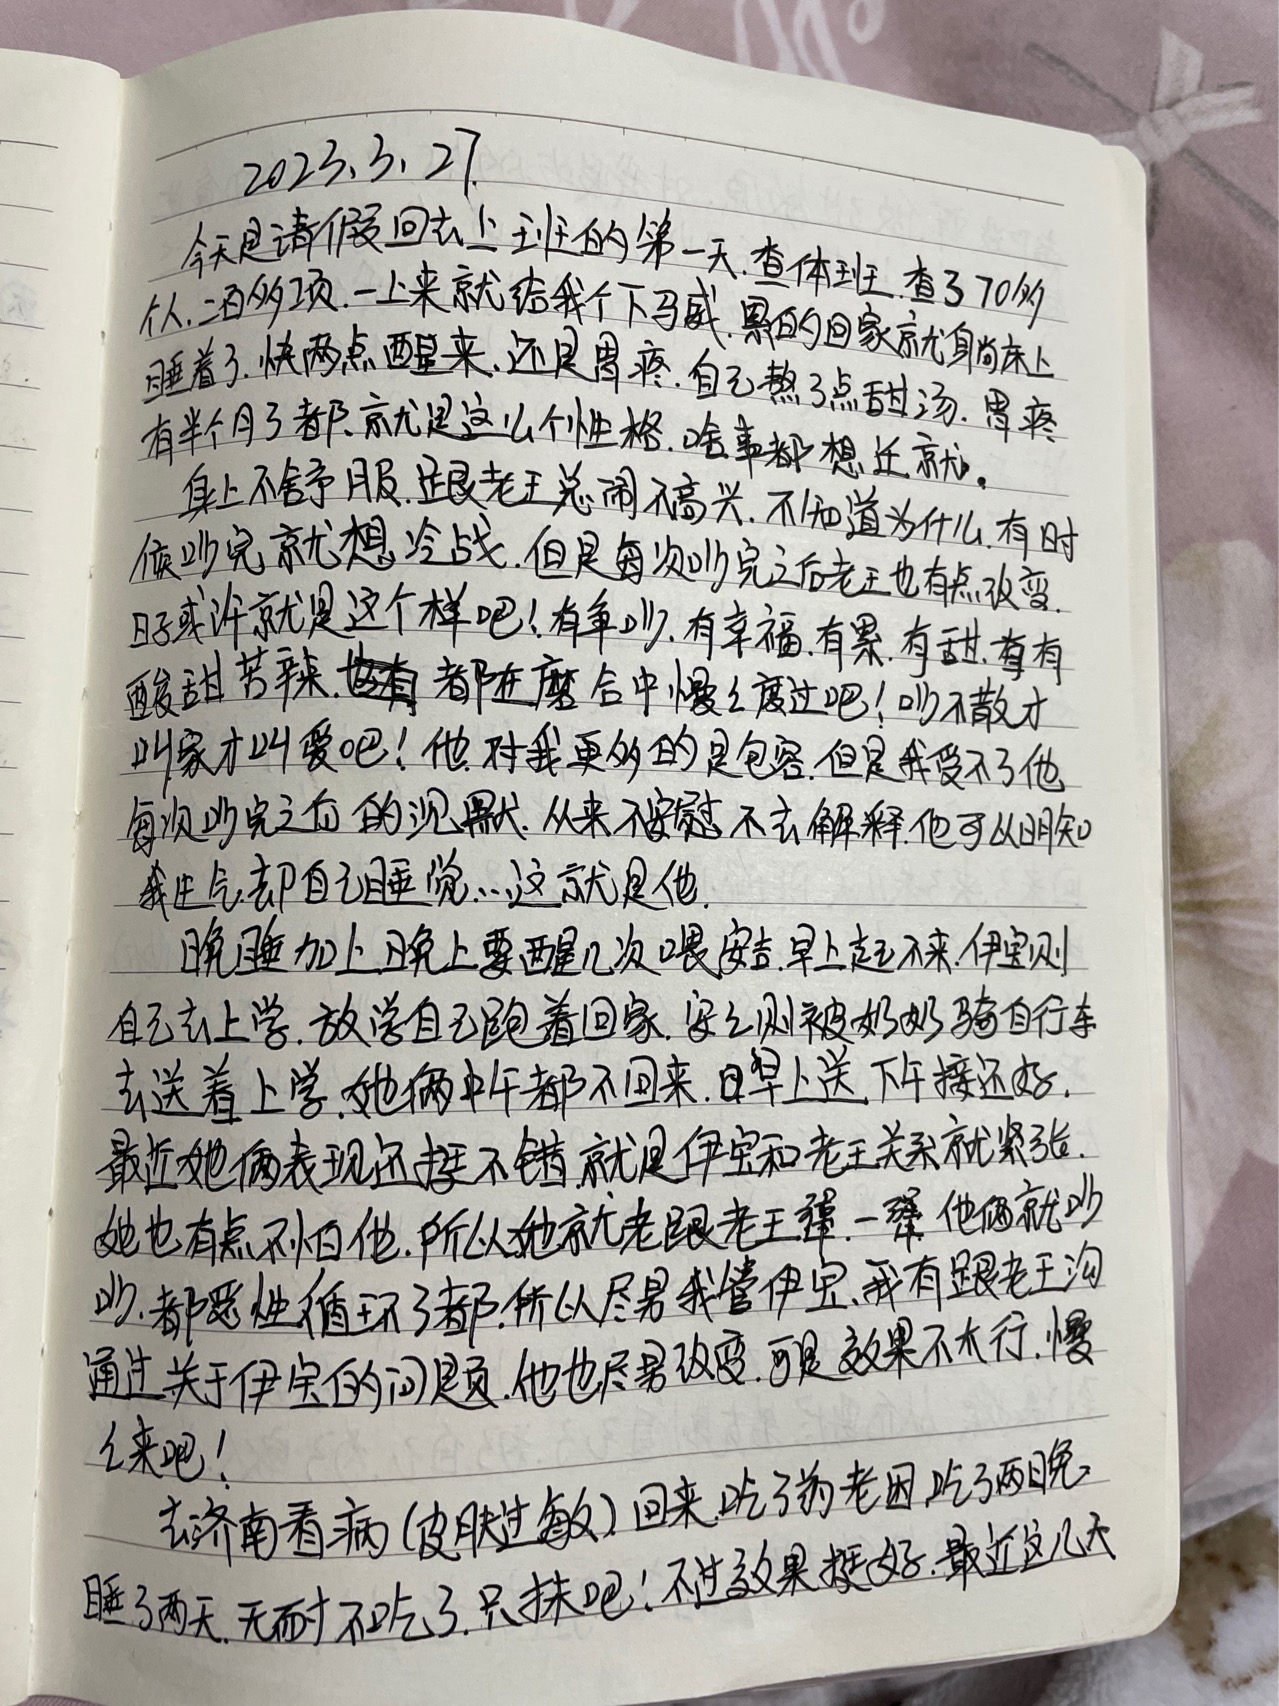 2023.3.27.
今天是请假回去上班的第一天.查体班.查了70多
个人.二百多项.一上来就给我个下马威.累的回家就躺床上
睡着了.快两点醒来.还是胃疼.自己熬了点甜汤.胃疼
有半个月了都.就是这么个性格.啥事都想迁就。
身上不舒服.跟老王总闹不高兴.不知道为什么.有时
候吵完就想冷战.但是每次吵完之后老王也有点改变.
日子或许就是这个样吧!有争吵.有幸福.有累.有甜.有
酸甜苦辣.都在磨合中慢々度过吧!吵不散才
叫家才叫爱吧!他对我更多的是包容.但是我受不了他
每次吵完之后的沉默.从来不安慰不去解释.他可以明知
我生气.却自己睡觉...这就是他.
晚睡加上晚上要醒几次喂安吉.早上起不来.伊宝则
自己去上学.放学自己跑着回家.安々则被奶奶骑自行车
去送着上学.她俩中午都不回来.早上送.下午接还好.
最近她俩表现还挺不错.就是伊宝和老王关系就紧张.
她也有点不怕他.所以她就老跟老王犟.一犟他俩就吵
吵.都恶性循环了都.所以尽量我管伊宝.我有跟老王沟
通过关于伊宝的问题.他也尽量改变.可是效果不大行.慢
々来吧!
去济南看病(皮肤过敏)回来.吃了药老困.吃了两晚.
睡了两天.无耐不吃了.只抹吧!不过效果挺好.最近这几天